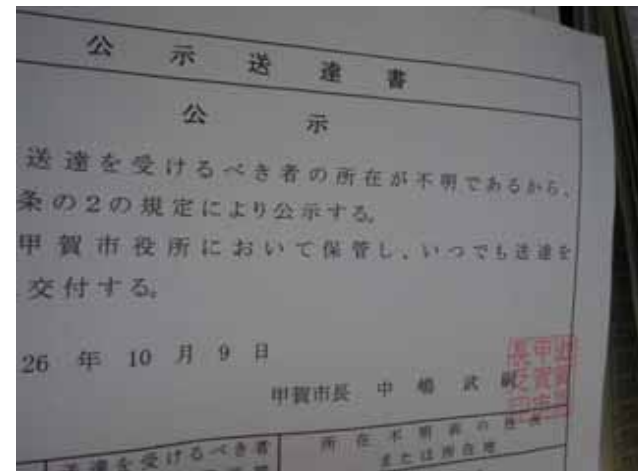 公示送達書
公示
送達を受けるべき者の所在が不明であるから、
条の2の規定により公示する。
甲賀市役所において保管し、いつでも送達を
交付する。
26 年 10 月 9 日
甲賀市長 中嶋武嗣
送達を受けるべき者
所在不明前の住所
または所在地